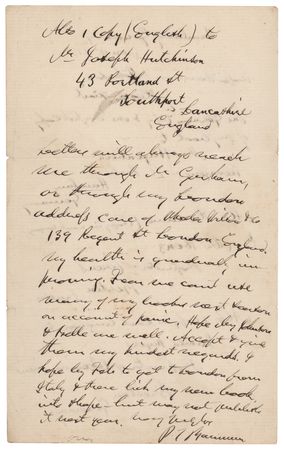 Also 1 copy (English) to
Mr Joseph Hutchinson
43 Portland St
Southport
Lancashire
England
Letters will always reach
me through Mr Gorham,
or through my London
address care of
139 Regent St London, England
my health is gradually im
proving. Fear we can't use
many of my books next season
on account of panic. Hope
& are well. Accept & give
them my kindest regards. I
hope by to get to London from
Italy & there my new book,
I hope - but may not publish
it next year. Truly
P T Barnum